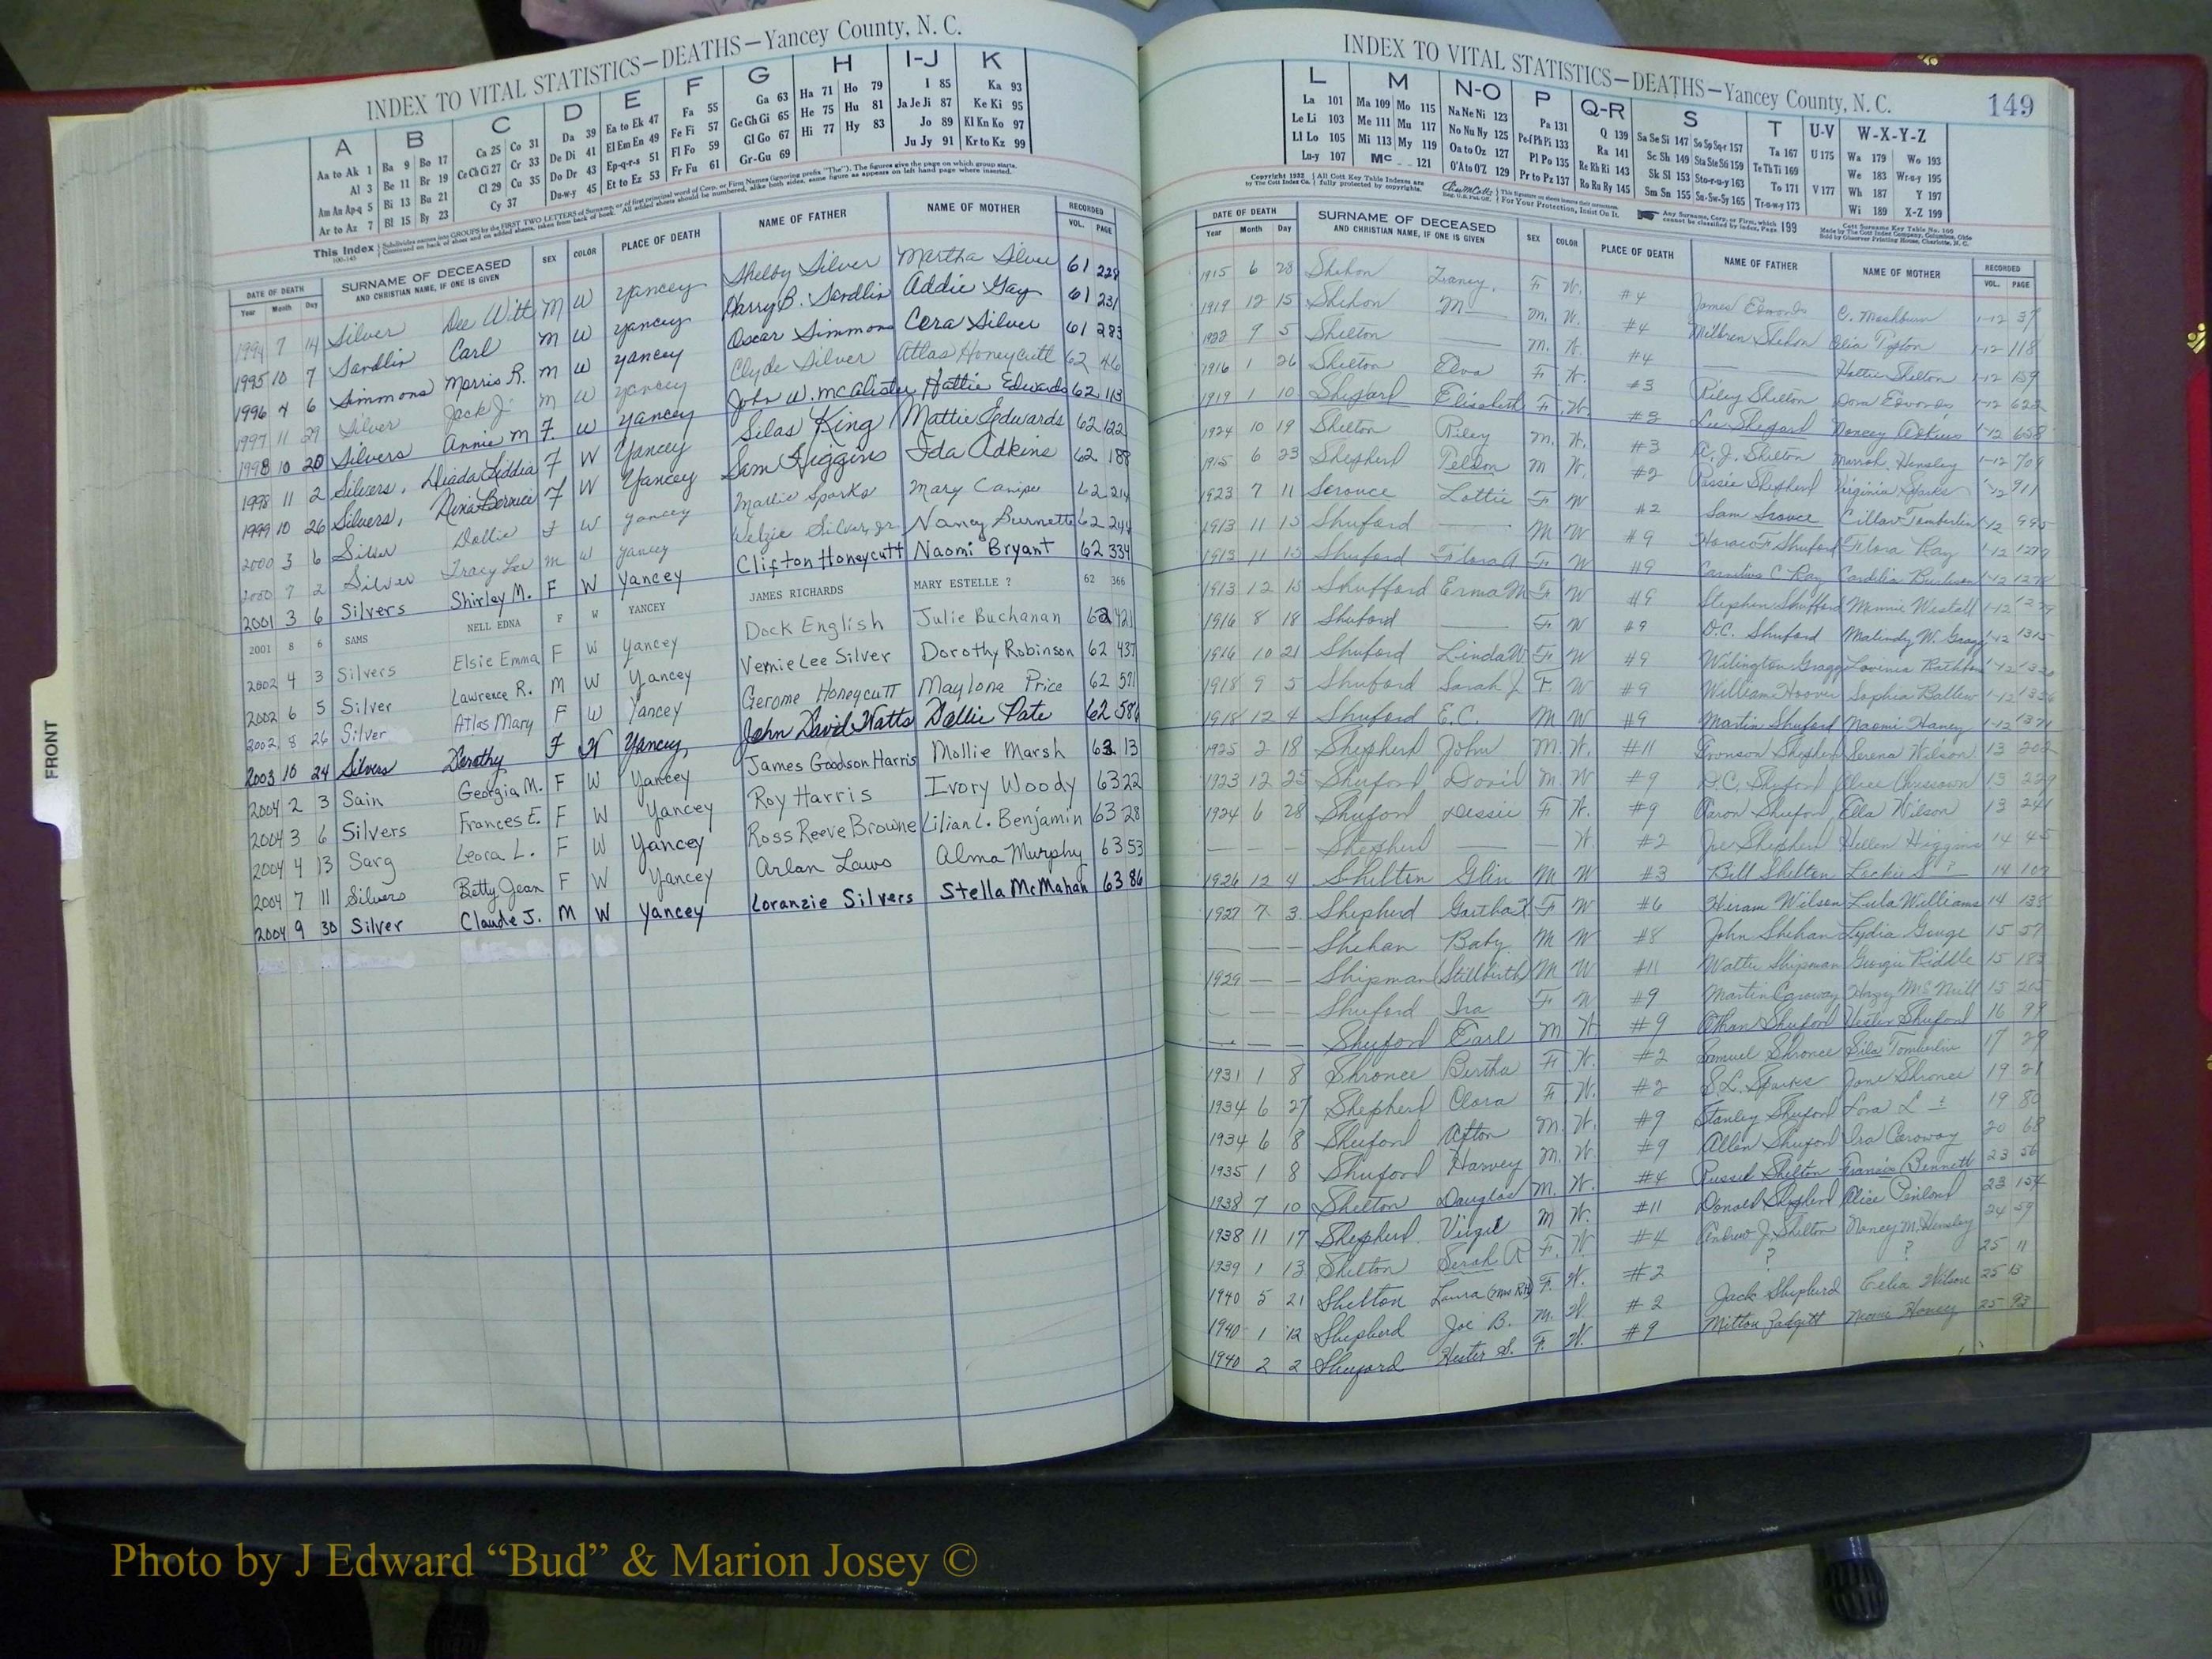 INDEX TO VITAL STATISTICS—DEATHS—Yancey County, N. C.
A B C D E F G H I-J K
Aa to Ak 1 Ba 9 Bo 17 Ca 25 Co 31 Da 39 Ea to Ek 47 Fa 55 Ga 63 Ha 71 Ho 79 I 85 Ka 93
Al 3 Be 11 Br 19 Ce Ch Ci 27 Cr 33 De Di 41 El Em En 49 Fe Fi 57 Ge Gh Gi 65 He 75 Hu 81 Ja Je Ji 87 Ke Ki 95
Am An Ap-q 5 Bi 13 Bu 21 Cl 29 Cu 35 Do Dr 43 Ep-q-r-s 51 Fl Fo 59 Gl Go 67 Hi 77 Hy 83 Jo 89 Kl Kn Ko 97
Ar to Az 7 Bl 15 By 23 Cy 37 Du-w-y 45 Et to Ez 53 Fr Fu 61 Gr-Gu 69 Ju Jy 91 Kr to Kz 99
This Index
DATE OF DEATH SURNAME OF DECEASED SEX COLOR PLACE OF DEATH NAME OF FATHER NAME OF MOTHER RECORDED
Year Month Day AND CHRISTIAN NAME, IF ONE IS GIVEN VOL. PAGE
1994 7 14 Silver Dee Witt M W Yancey Shelby Silver Martha Silver 61 228
1995 10 7 Sandlin Carl M W Yancey Harry B. Sandlin Addie Gay 61 231
1996 4 6 Simmons Morris R. M W Yancey Oscar Simmons Cora Silver 61 283
1997 11 29 Silver Jack J. M W Yancey Clyde Silver Atlas Honeycutt 62 46
1998 10 20 Silvers Annie M F. W Yancey John W. McAlister Hattie Edwards 62 113
1998 11 2 Silvers, Diada Liddia F W Yancey Silas King Mattie Edwards 62 122
1999 10 26 Silvers, Nina Bernice F W Yancey Sam Higgins Ida Adkins 62 188
2000 3 6 Silver Dollie F W Yancey Mallie Sparks Mary Canipe 62 214
2000 7 2 Silver Tracy Lee M W Yancey Welzie Silver, Jr. Nancy Burnette 62 244
2001 3 6 Silvers Shirley M. F W Yancey Clifton Honeycutt Naomi Bryant 62 334
2001 8 6 SAMS NELL EDNA F W YANCEY JAMES RICHARDS MARY ESTELLE ? 62 366
2002 4 3 Silvers Elsie Emma F W Yancey Dock English Julie Buchanan 62 421
2002 6 5 Silver Lawrence R. M W Yancey Vernie Lee Silver Dorothy Robinson 62 437
2002 8 26 Silver Atlas Mary F W Yancey Gerome Honeycutt Maylona Price 62 571
2003 10 24 Silvers Dorothy F W Yancey John David Watts Dollie Pate 62 586
2004 2 3 Sain Georgia M. F W Yancey James Goodson Harris Mollie Marsh 63 13
2004 3 6 Silvers Frances E. F W Yancey Roy Harris Ivory Woody 63 22
2004 4 13 Sarg Leora L. F W Yancey Ross Reeve Browne Lilian L. Benjamin 63 28
2004 7 11 Silvers Betty Jean F W Yancey Arlan Laws Alma Murphy 63 53
2004 9 30 Silver Claude J. M W Yancey Loranzie Silvers Stella McMahan 63 86
FRONT
INDEX TO VITAL STATISTICS—DEATHS—Yancey County, N. C. 149
L M N-O P Q-R S T U-V W-X-Y-Z
La 101 Ma 109 Mo 115 Na Ne Ni 123 Pa 131 Q 139 Sa Se Si 147 So Sp Sq-r 157 Ta 167 U 175 Wa 179 Wo 193
Le Li 103 Me 111 Mu 117 No Nu Ny 125 Pe-f Ph Pi 133 Ra 141 Sc Sh 149 Sta Ste Sti 159 Te Th Ti 169 We 183 Wr-u-y 195
Ll Lo 105 Mi 113 My 119 Oa to Oz 127 Pl Po 135 Re Rh Ri 143 Sk Sl 153 Sto-r-u-y 163 To 171 V 177 Wh 187 Y 197
Lu-y 107 Mc 121 O'A to O'Z 129 Pr to Pz 137 Ro Ru Ry 145 Sm Sn 155 Su-Sw-Sy 165 Tr-u-w-y 173 Wi 189 X-Z 199
DATE OF DEATH SURNAME OF DECEASED SEX COLOR PLACE OF DEATH NAME OF FATHER NAME OF MOTHER RECORDED
Year Month Day AND CHRISTIAN NAME, IF ONE IS GIVEN VOL. PAGE
1915 6 28 Shehan Laney F W. #4 James Edwards C. Mashburn 1-12 37
1919 12 15 Shehan M M. W. #4 Milbren Shehan Tipton 1-12 118
1922 9 5 Shelton M. W. #4 Hattie Shelton 1-12 159
1916 1 26 Shelton Elva F W. #3 Riley Shelton Dora Edwards 1-12 622
1919 1 10 Shepard Elisabeth F. W. #2 Lee Shepard Nancy Adkins 1-12 658
1924 10 19 Shelton Riley M. W. #3 A. J. Shelton Hensley 1-12 709
1915 6 23 Shepherd Pelson M W. #2 Shepherd Virginia Sparks 1-12 911
1923 7 11 Scronce Lottie F W #2 Sam Scronce Tomberlin 1-12 995
1913 11 15 Shuford M W #9 Horace F Shuford Flora Ray 1-12 1277
1913 11 15 Shuford Flora A F W #9 Cornelius C Ray Cordelia Burleson 1-12 1278
1913 12 15 Shufford Erma M F W #9 Stephen Shufford Minnie Westall 1-12 1279
1916 8 18 Shuford F W #9 D.C. Shuford Malindy W. Gragg 1-12 1315
1916 10 21 Shuford Linda W. F W #9 Wilington Gragg Lovenia 1-12 1320
1918 9 5 Shuford Sarah J F. W #9 William Hoover Sophia Ballew 1-12 1356
1918 12 4 Shuford E.C. M W #9 Martin Shuford Naomi Haney 1-12 1371
1925 2 18 Shepherd John M. W. #11 Shepherd Serena Wilson 13 202
1923 12 25 Shuford David M. W #9 D.C. Shuford Alice 13 229
1924 6 28 Shuford Dessie F W. #9 Aaron Shuford Ella Wilson 13 241
— — — Shepherd — W. #2 Joe Shepherd Hellen Higgins 14 45
1926 12 4 Shelton Glin M W #3 Bill Shelton Lockie S ? 14 107
1927 7 3 Shepherd Gartha F W #6 Hiram Wilson Lula Williams 14 138
— — — Shehan Baby M W #8 John Shehan Lydia Gouge 15 57
1929 — — Shipman (Stillbirth) M W #11 Walter Shipman Georgie Riddle 15 183
— — — Shuford Ira F W #9 Martin Caroway McNeill 15 215
— — — Shuford Earl M W #9 Shuford Hester Shuford 16 99
1931 1 8 Shronce Bertha F. W. #2 Samuel Shronce Tomberlin 17 29
1934 6 27 Shepherd Clara F W. #2 S.L. Sparks Jane Shronce 19 21
1934 6 8 Shuford Afton M. W. #9 Stanley Shuford Lora L ? 19 80
1935 1 8 Shuford Harvey M. W. #9 Allen Shuford Ira Caroway 20 68
1938 7 10 Shelton Douglas M. W. #4 Russel Shelton Francis Bennett 23 56
1938 11 17 Shepherd Virgil M W. #11 Donald Shepherd Alice Penland 23 154
1939 1 13 Shelton Serah R F. W. #4 Andrew J. Shelton Nancy M. Hensley 24 59
1940 5 21 Shelton Laura (Mrs R.H) F. W. #2 ? ? 25 11
1940 1 12 Shepherd Joe B. M. W. #2 Jack Shepherd Celia Wilson 25 13
1940 2 2 Shuford Hester S. F. W. #9 Milton Padgett Neomi Haney 25 93
Photo by J Edward “Bud” & Marion Josey ©